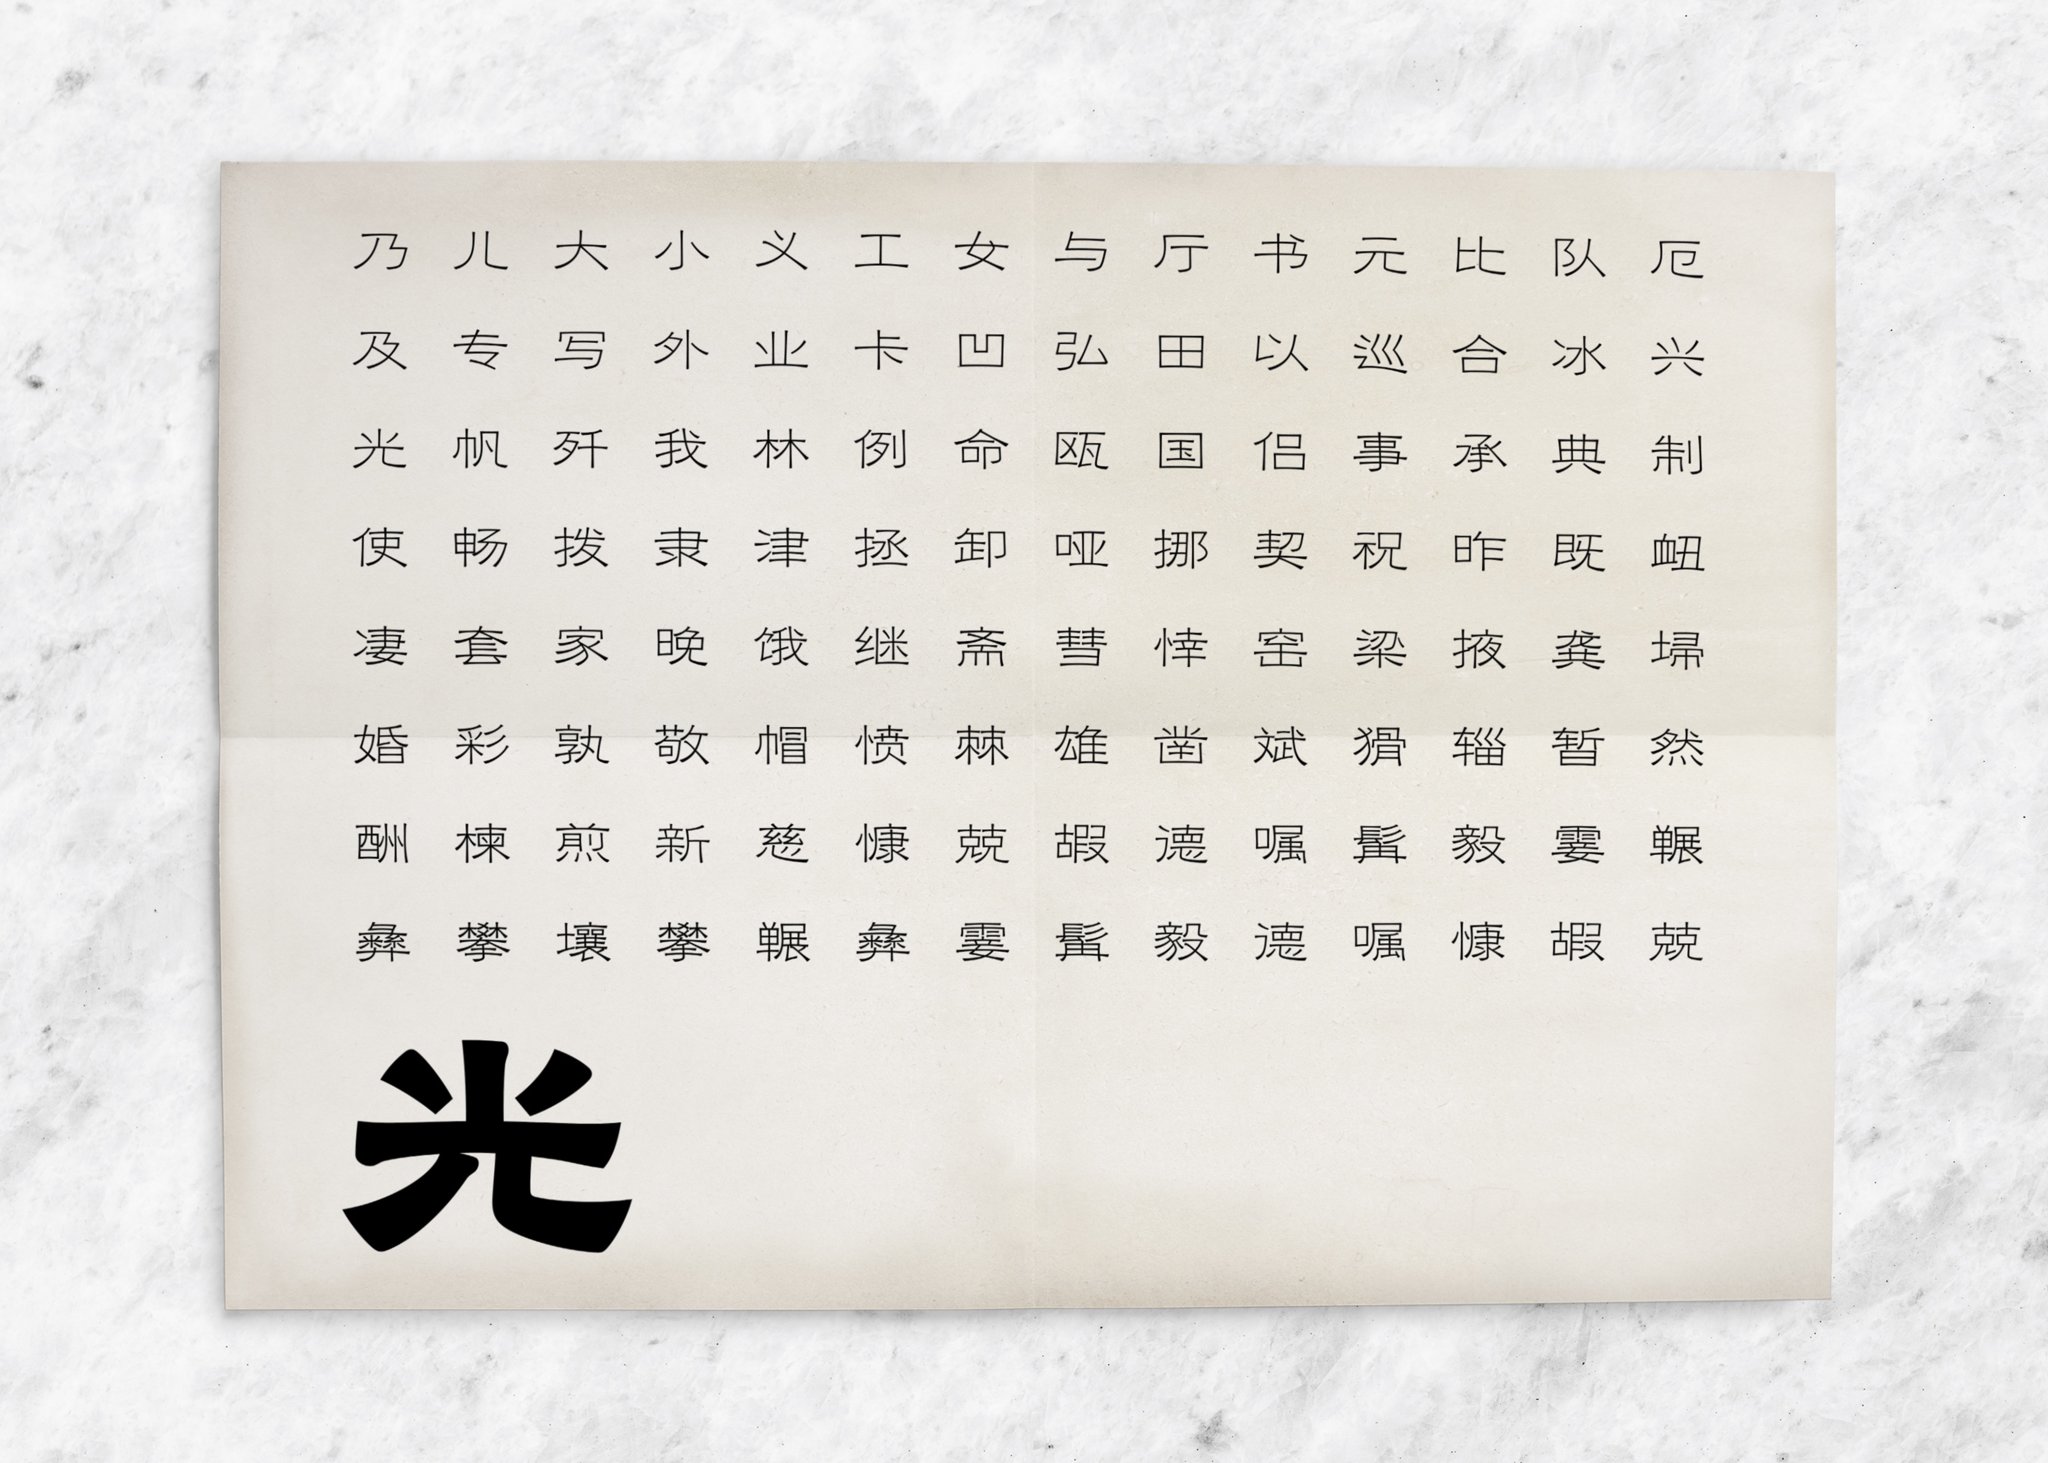 乃 儿 大 小 义 工 女 与 厅 书 元 比 队 厄
及 专 写 外 业 卡 凹 弘 田 以 巡 合 冰 兴
光 帆 歼 我 林 例 命 瓯 国 侣 事 承 典 制
使 畅 拨 隶 津 拯 卸 哑 挪 契 祝 昨 既 衄
凄 套 家 晚 饿 继 斋 彗 悻 窑 梁 掖 龚 埽
婚 彩 孰 敬 帽 愤 棘 雄 凿 斌 猾 辎 暂 然
酬 楝 煎 新 慈 慷 兢 嘏 德 嘱 髯 毅 霎 辗
彝 攀 壤 攀 辗 彝 霎 髯 毅 德 嘱 慷 嘏 兢
光